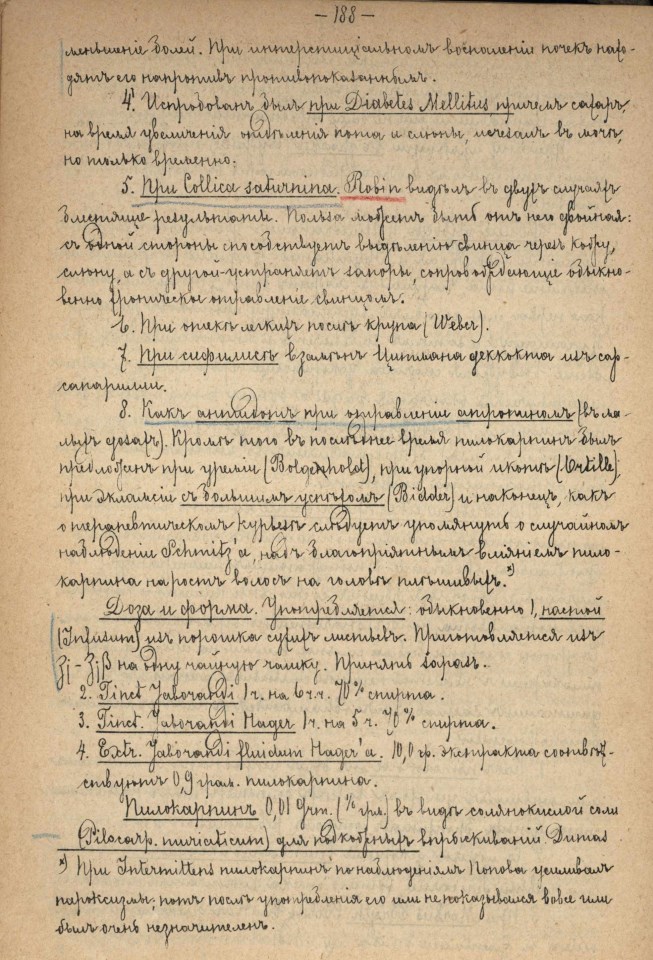 — 188 —
меньшеніе болей. При интерстиціальномъ воспаленіи почекъ нахо-
дятъ его напротивъ противопоказаннымъ.
4. Испробованъ былъ при Diabetes Mellitus, причемъ сахаръ,
на время увеличенія отдѣленія пота и слюны, исчезалъ въ мочѣ,
но только временно.
5. При Collica saturnina. Robin видѣлъ въ двухъ случаяхъ
блестящіе результаты. Польза можетъ быть отъ него двойная:
съ одной стороны способствуетъ выдѣленію свинца черезъ кожу,
слюну, а съ другой - устраняетъ запоры, сопровождающіе обыкно-
венно хроническое отравленіе свинцомъ.
6. При отекѣ легкихъ послѣ крупа (Weber).
7. При сифилисѣ взамѣнъ Цитмана деккокта изъ сар-
сапариллы.
8. Какъ антидотъ при отравленіе атропиномъ (въ ма-
лыхъ дозахъ). Кромѣ того въ послѣднее время пилокарпинъ былъ
предложенъ при уреміи, при упорной икотѣ (Ortille),
при эклампсіи съ большимъ успѣхомъ (Bidder) и наконецъ, какъ
о терапевтическомъ курьезѣ слѣдуетъ упомянуть о случайномъ
наблюденіе Schmitz'а, надъ благопріятнымъ вліяніемъ пило-
карпина на ростъ волосъ на головѣ плѣшивыхъ. *)
Доза и форма. Употребляется: обыкновенно 1, настой
(Infusum) изъ порошка сухихъ листьевъ. Приготовляется изъ
ʒj - ʒjβ на одну чайную чашку. Принять заразъ.
2. Tinct. Jaborandi 1 ч. на 6 ч.ч. 70% спирта.
3. Tinct. Jaborandi Hager 1 ч. на 5 ч. 70% спирта.
4. Extr. Jaborandi fluidum Hager'а. 10,0 гр. экстракта соотвѣт-
ствуютъ 0,9 грам. пилокарпина.
Пилокарпинъ 0,01 Grm. въ видѣ солянокислой соли
(Pilocarp. muriaticum) для подкожныхъ впрыскиваній. Dumas
*) При Intermittens пилокарпинъ по наблюденіямъ Попова усиливалъ
пароксизмы; потъ послѣ употребленія его или не показывался вовсе или
былъ очень незначителенъ.